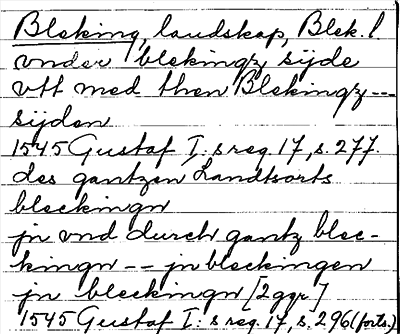 Bleking, landskap, Blek. l.
vnder blekingz sijde
vtt med then Blekingz ---
sijden
1545 Gustaf I:s reg. 17, s. 277.
des gantzen Landtsorts
bleckingn
jn vnd durch gantz blec-
kingn -- jn bleckingen
jn bleckingn [2 ggr]
1545 Gustaf I:s reg. 17, s. 296 (forts.)